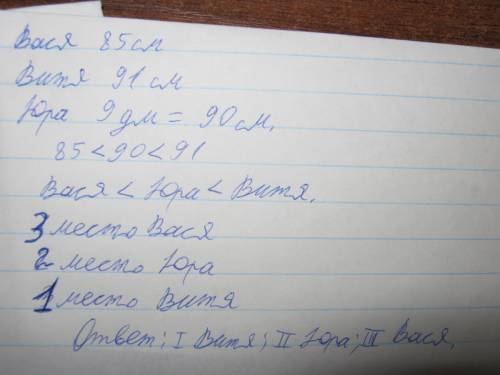 Вася 85 см
Витя 91 см
Юра 9 дм = 90 см.
85 < 90 < 91
Вася < Юра < Витя.
3 место Вася
2 место Юра
1 место Витя
Ответ: I Витя; II Юра; III Вася.